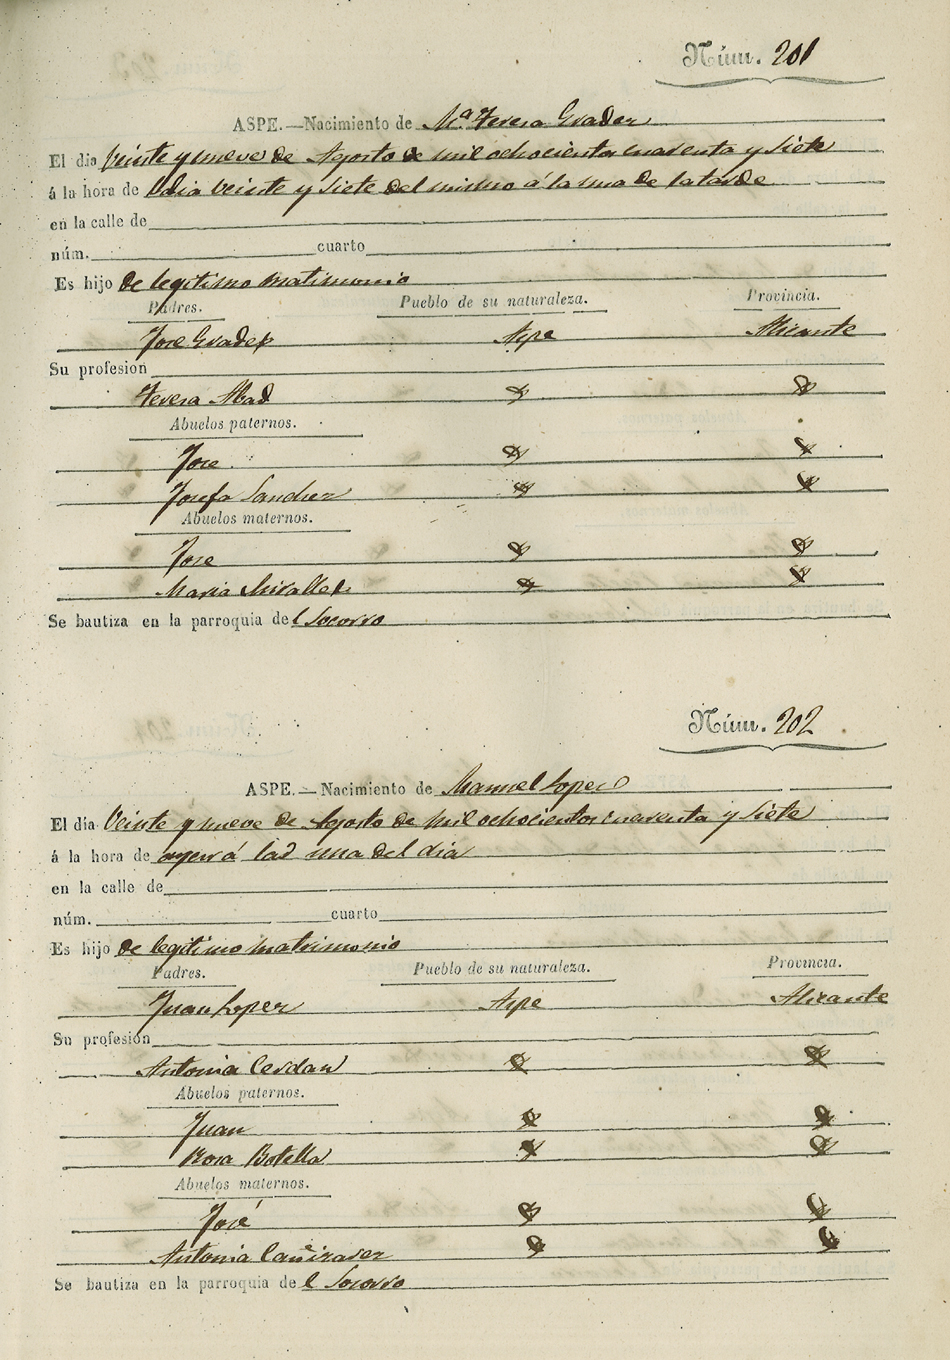 Núm. 201
ASPE.—Nacimiento de Mª Teresa Grader
El dia Veinte y nueve de Agosto de mil ochocientos cuarenta y Siete
á la hora de l dia Veinte y Siete del mismo á la una de la tarde
en la calle de
núm. cuarto
Es hijo de legitimo matimonio
Padres. Pueblo de su naturaleza. Provincia.
Jose Grader Aspe Alicante
Su profesion
Teresa Abad
Abuelos paternos.
Jose
Josefa Sanchez
Abuelos maternos.
Jose
Maria Miralles
Se bautiza en la parroquia del Socorro
Núm. 202
ASPE.—Nacimiento de Manuel Lopez
El dia Veinte y nueve de Agosto de mil ochocientos cuarenta y Siete
á la hora de ayer á las una del dia
en la calle de
núm. cuarto
Es hijo de legitimo matrimonio
Padres. Pueblo de su naturaleza. Provincia.
Juan Lopez Aspe Alicante
Su profesión
Antonia Cerdan
Abuelos paternos.
Juan
Rosa Botella
Abuelos maternos.
José
Antonia Cañizares
Se bautiza en la parroquia de l Socorro